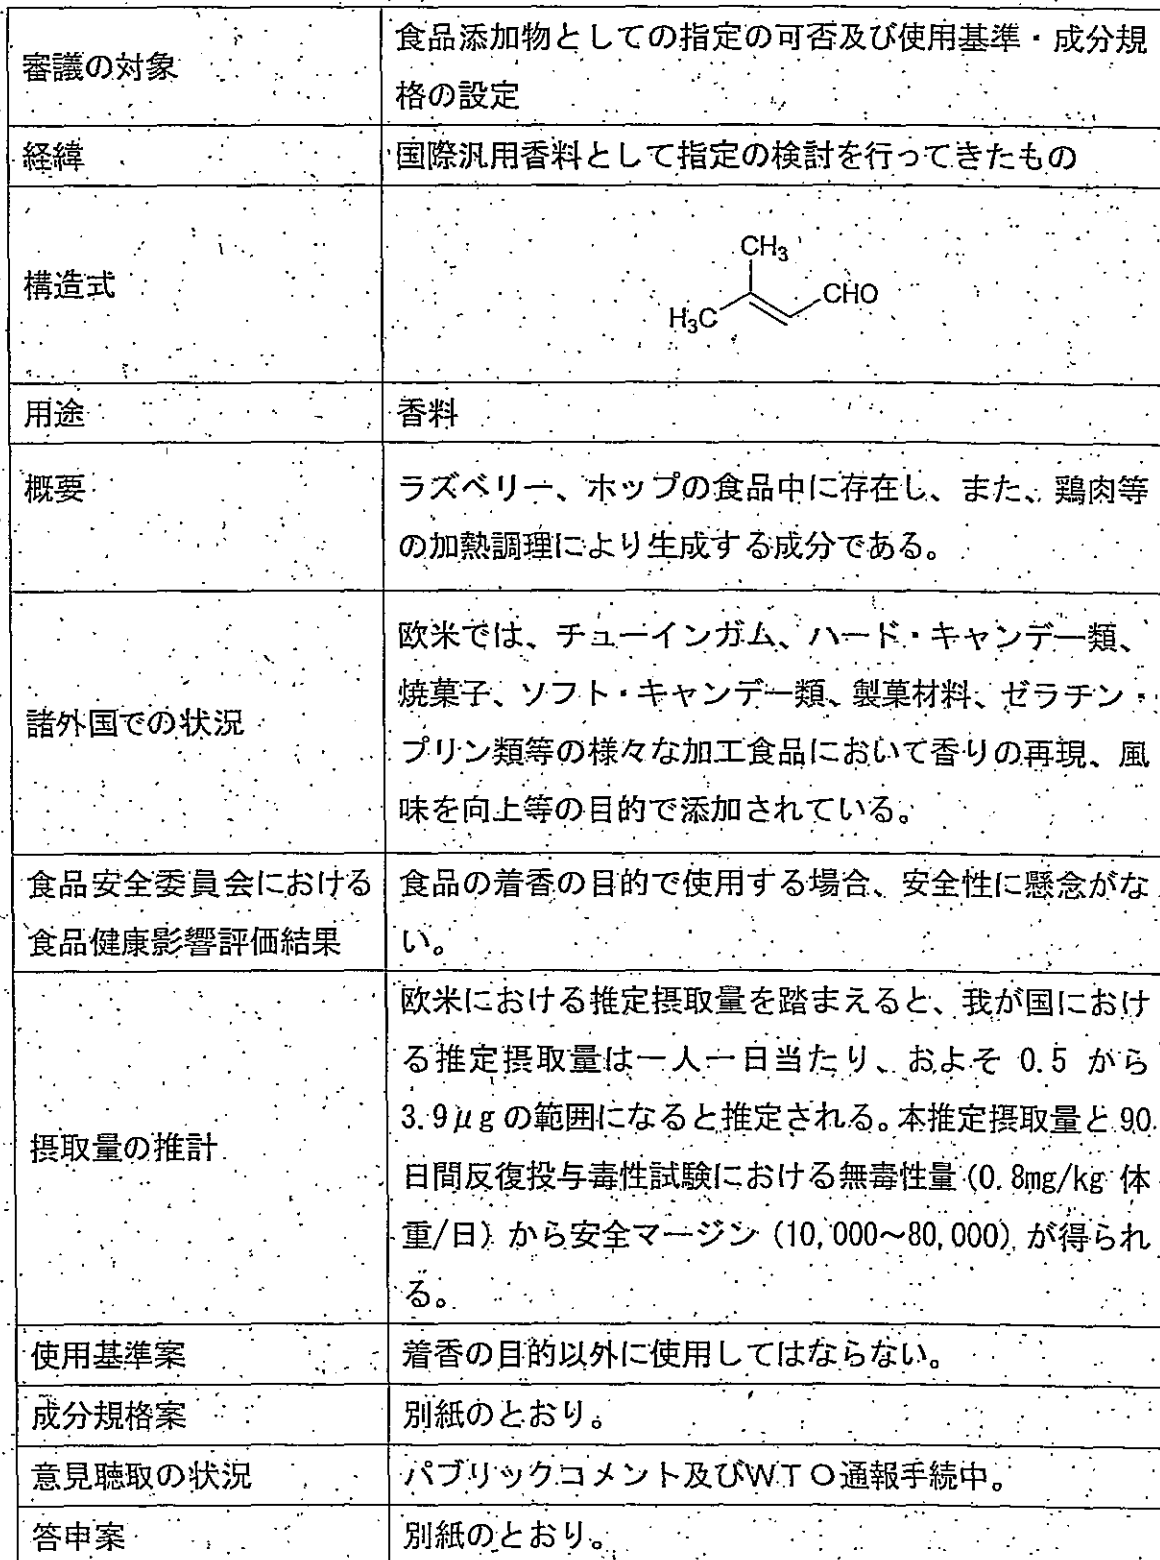 審議の対象
食品添加物としての指定の可否及び使用基準・成分規
格の設定
経緯
国際汎用香料として指定の検討を行ってきたもの
構造式
CH3
H3C
CHO
用途
香料
概要
ラズベリー、ホップの食品中に存在し、また、鶏肉等
の加熱調理により生成する成分である。
諸外国での状況
欧米では、チューインガム、ハード・キャンデー類、
焼菓子、ソフト・キャンデー類、製菓材料、ゼラチン・
プリン類等の様々な加工食品において香りの再現、風
味を向上等の目的で添加されている。
食品安全委員会における
食品健康影響評価結果
食品の着香の目的で使用する場合、安全性に懸念がな
い。
摂取量の推計
欧米における推定摂取量を踏まえると、我が国におけ
る推定摂取量は一人一日当たり、およそ 0.5 から
3.9μgの範囲になると推定される。本推定摂取量と90
日間反復投与毒性試験における無毒性量(0.8mg/kg 体
重/日)から安全マージン(10,000~80,000)が得られ
る。
使用基準案
着香の目的以外に使用してはならない。
成分規格案
別紙のとおり。
意見聴取の状況
パブリックコメント及びWTO通報手続中。
答申案
別紙のとおり。